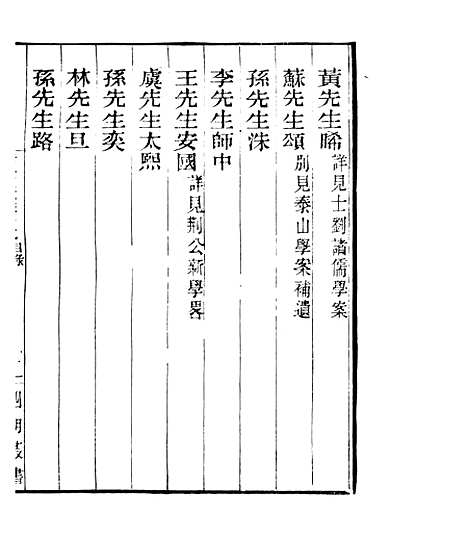 黃先生晞詳見士劉諸儒學案
蘇先生頌別見泰山學案補遺
孫先生洙
李先生師中
王先生安國詳見荊公新學畧
虞先生太熙
孫先生奕
林先生旦
孫先生路
目錄
四明叢書